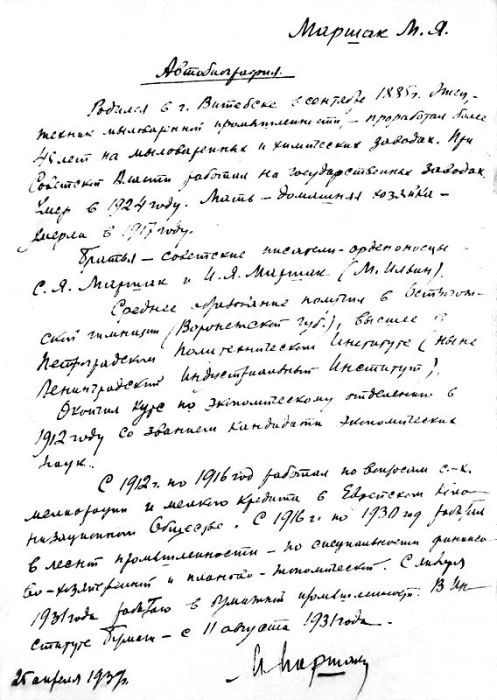 Маршак М. Я.
Автобиография.
Родился в г. Витебске в сентябре 1885г. Отец,
техник мыловаренной промышленности, – проработал более
45 лет на мыловаренных и химических заводах. При
Советской Власти работал на государственных заводах.
Умер в 1924 году. Мать – домашняя хозяйка –
умерла в 1917 году.
Братья – советские писатели-орденоносцы
С. Я. Маршак и И. Я. Маршак (М. Ильин).
Среднее образование получил в Острогож-
ской гимназии (Воронежской губ.), высшее в
Петроградском Политехническом Институте (ныне
Ленинградский Индустриальный Институт).
Окончил курс по экономическому отделению в
1912 году со званием кандидата экономических
наук.
С 1912 г. по 1916 год работал по вопросам с.-х.
мелиорации и мелкого кредита в Еврейском Коло-
низационном Обществе. С 1916 г. по 1930 год работал
в лесной промышленности – по специальности финансо-
во-хозяйственной и планово-экономической. С
1931 года работаю в бумажной промышленности. В Ин-
ституте Бумаги – с 11 августа 1931 года.
25 апреля 1939г. М Маршак